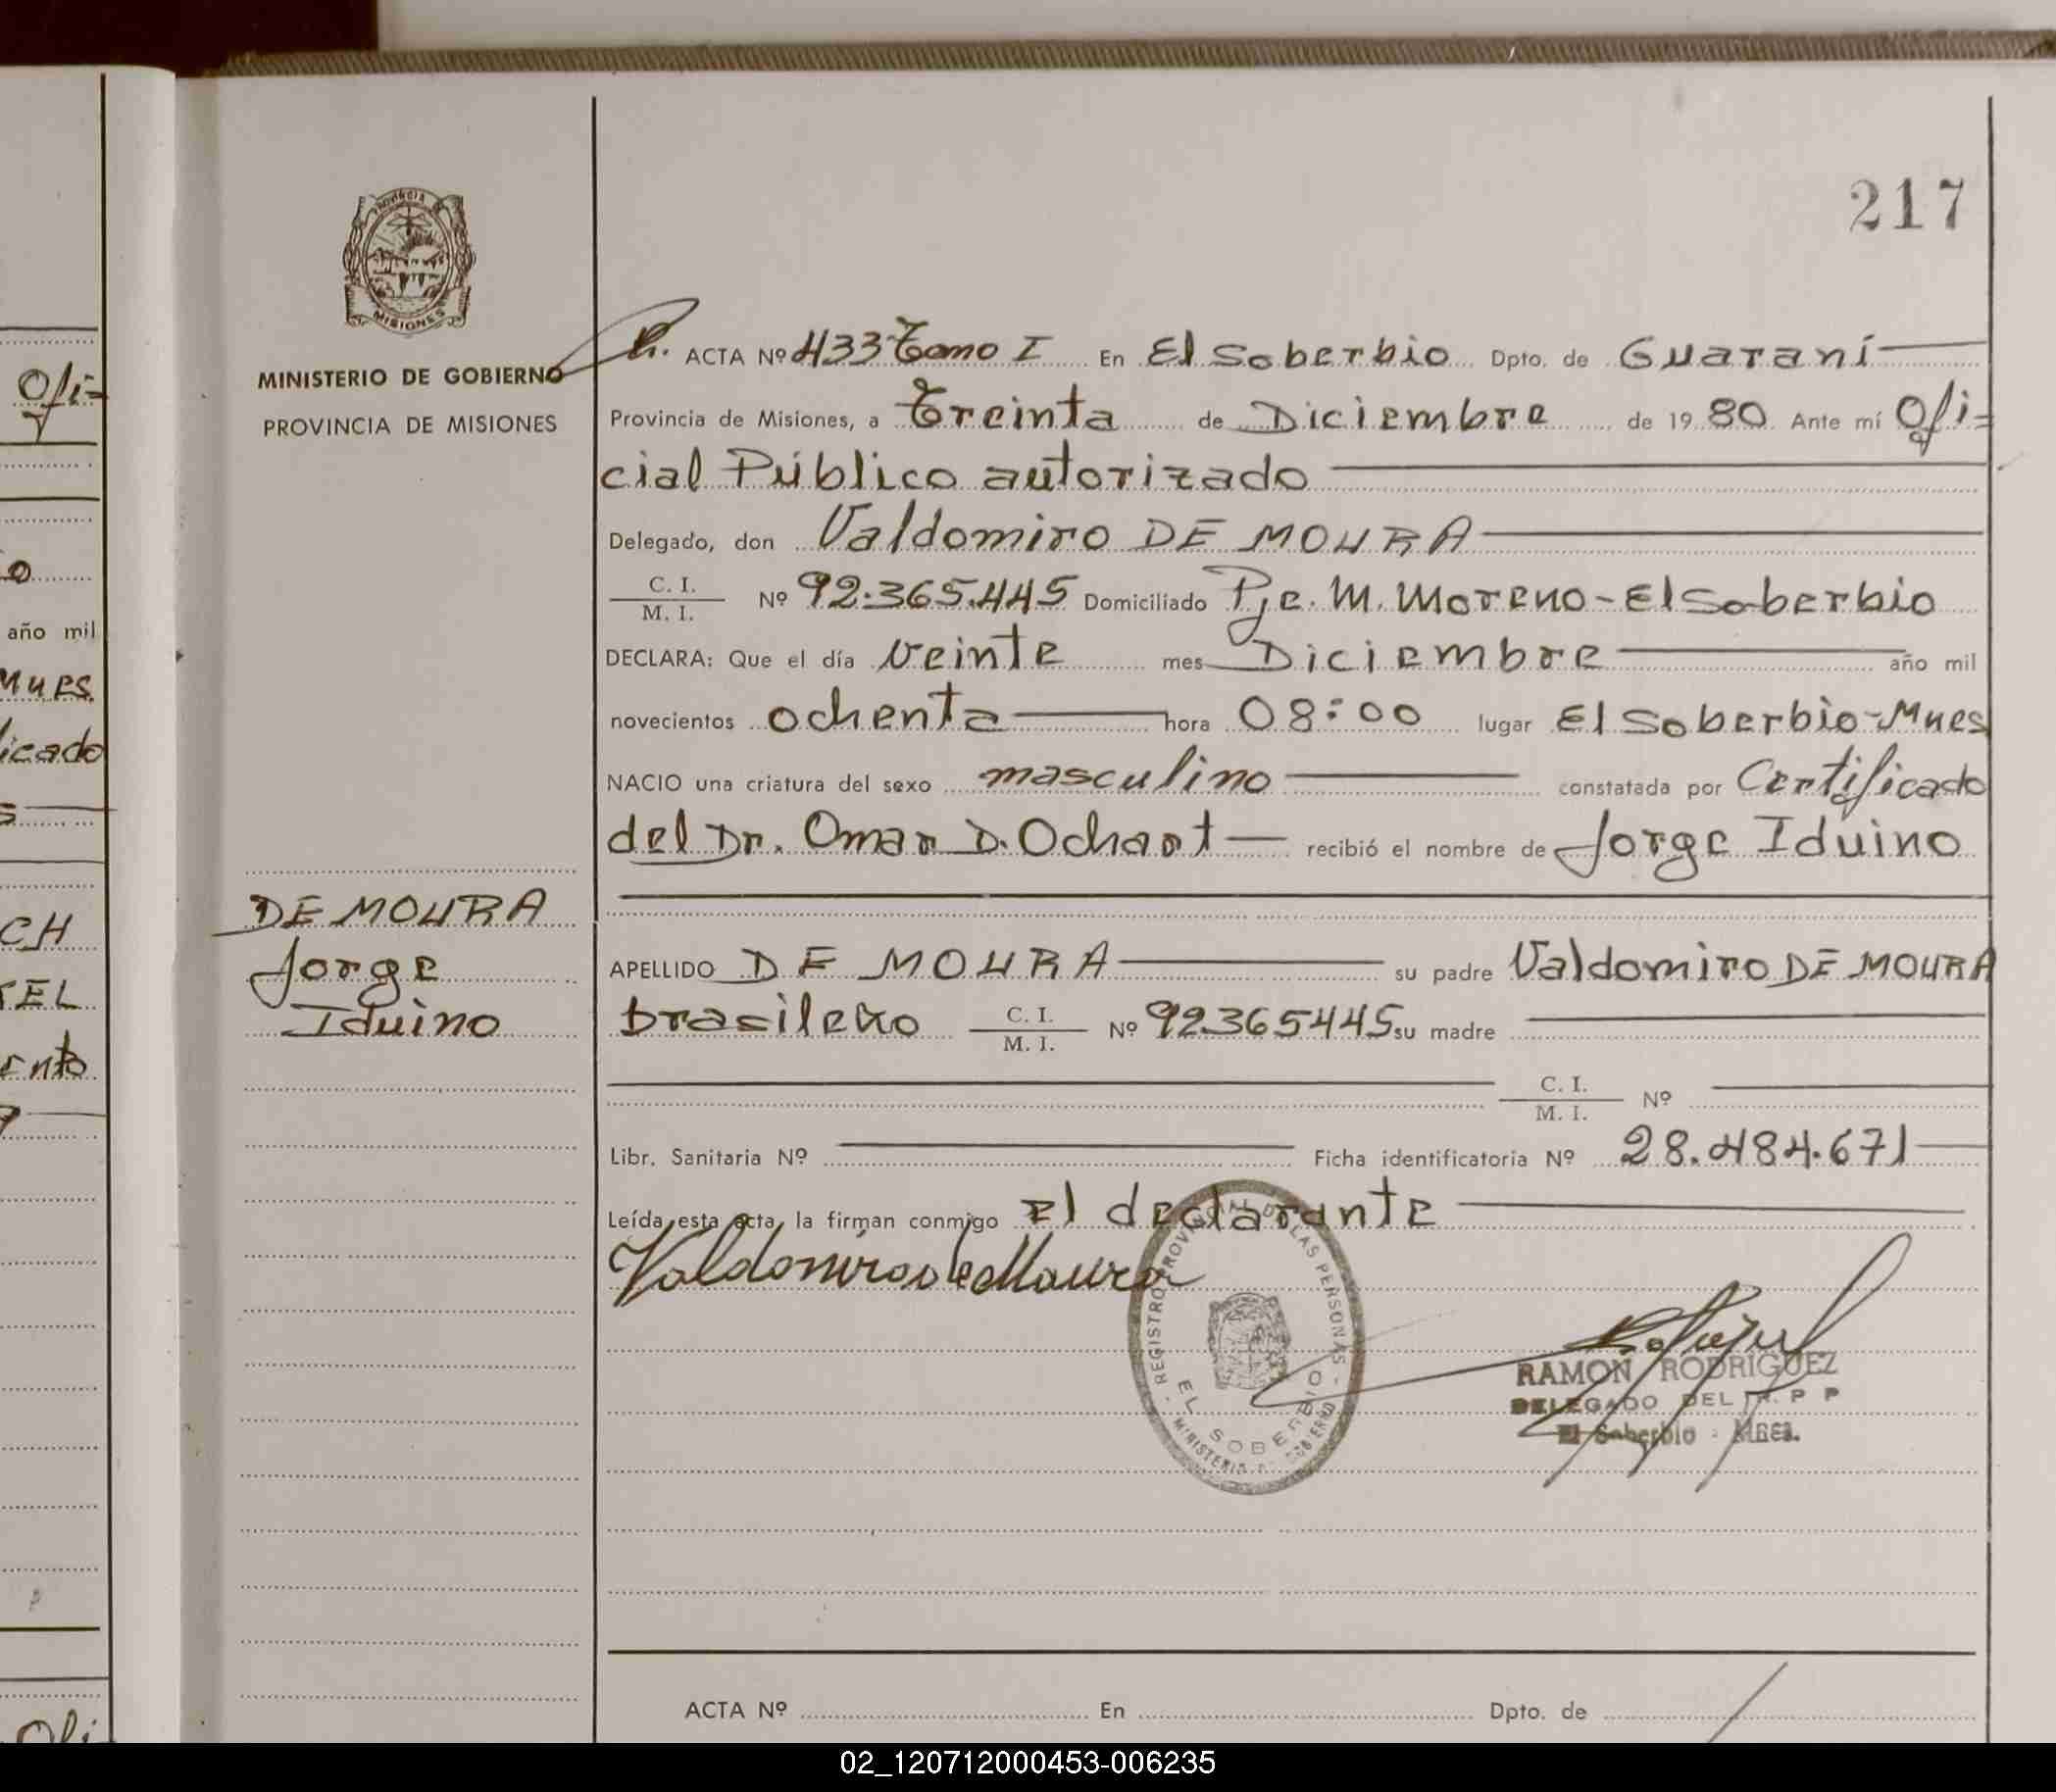 217
PROVINCIA DE
MISIONES
MINISTERIO DE GOBIERNO
PROVINCIA DE MISIONES
ACTA Nº 433 Tomo I En El Soberbio Dpto. de Guaraní
Provincia de Misiones, a Treinta de Diciembre de 1980 Ante mí Ofi=
cial Público autorizado
Delegado, don Valdomiro DE MOURA
C. I.
M. I. Nº 92.365.445 Domiciliado Pje. M. Moreno - El Soberbio
DECLARA: Que el día veinte mes Diciembre año mil
novecientos ochenta hora 08:00 lugar El Soberbio-Mnes
NACIO una criatura del sexo masculino constatada por Certificado
del Dr. Omar D. Ochart recibió el nombre de Jorge Iduino
DE MOURA
Jorge
Iduino
APELLIDO DE MOURA su padre Valdomiro DE MOURA
brasileño C. I.
M. I. Nº 92365445 su madre
C. I.
M. I. Nº
Libr. Sanitaria Nº Ficha identificatoria Nº 28.484.671
Leída esta acta, la firman conmigo El declarante
Valdomiro de Moura
REGISTRO PROVINCIAL DE LAS PERSONAS
EL SOBERBIO
MINISTERIO DE GOBIERNO
RAMON RODRIGUEZ
DELEGADO DEL R. P P
El Soberbio - Mnes.
ACTA Nº En Dpto. de
Ofi=
o
año mil
Mnes.
icado
CH
TEL
ento
Ofi
02_120712000453-006235